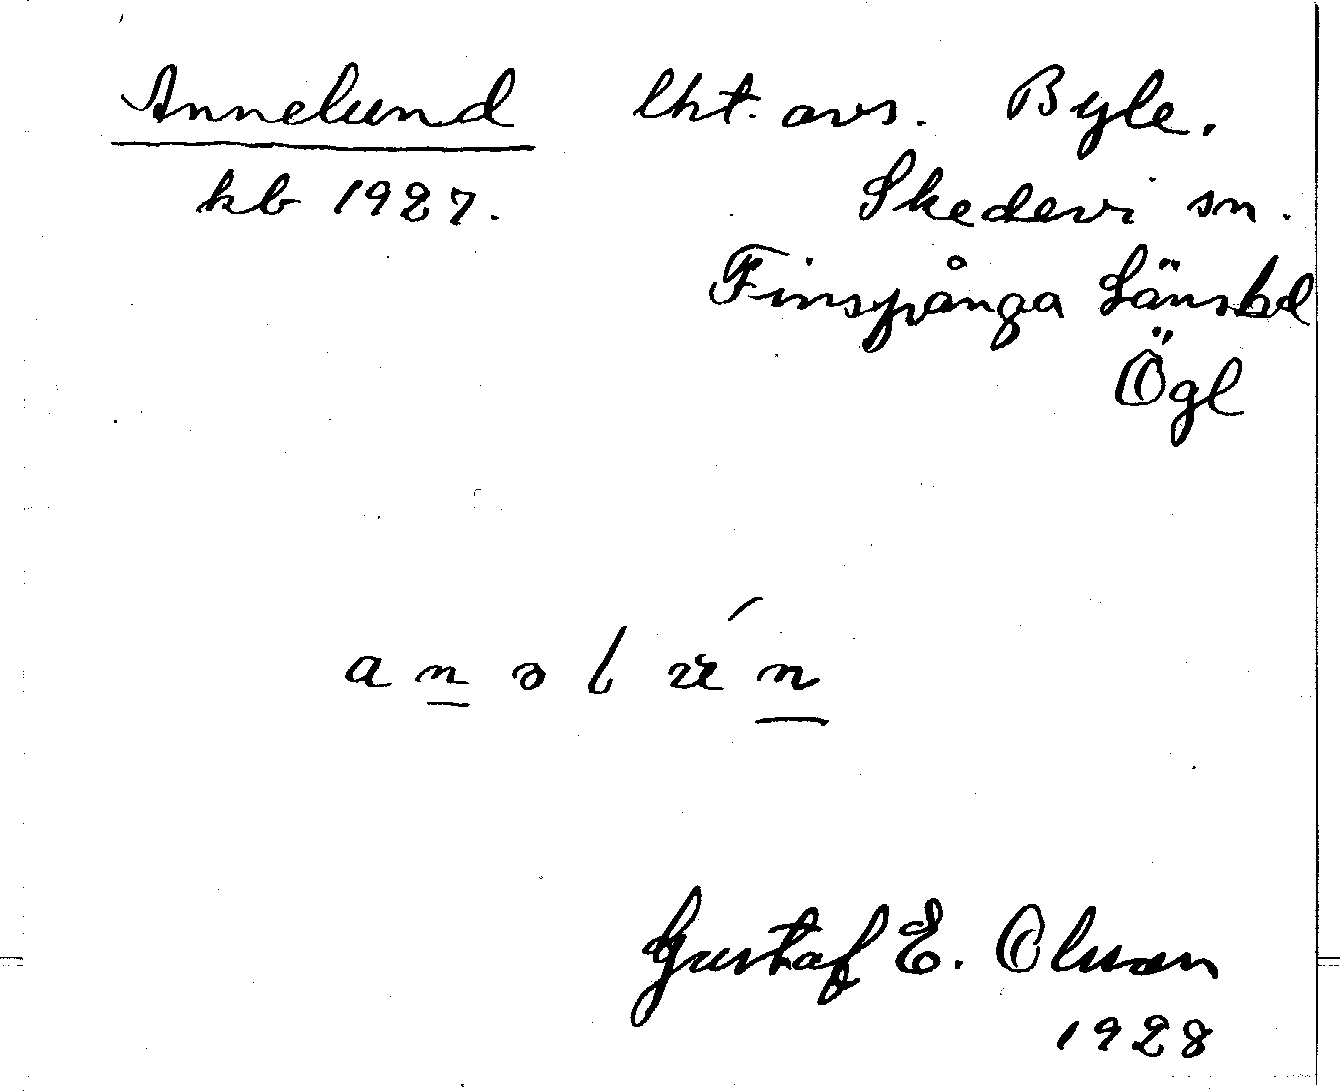 Annelund lht. avs. Byle.
kb 1927. Skedevi sn.
Finspånga Länshd
Ögl
Gustaf E. Olsson
1928